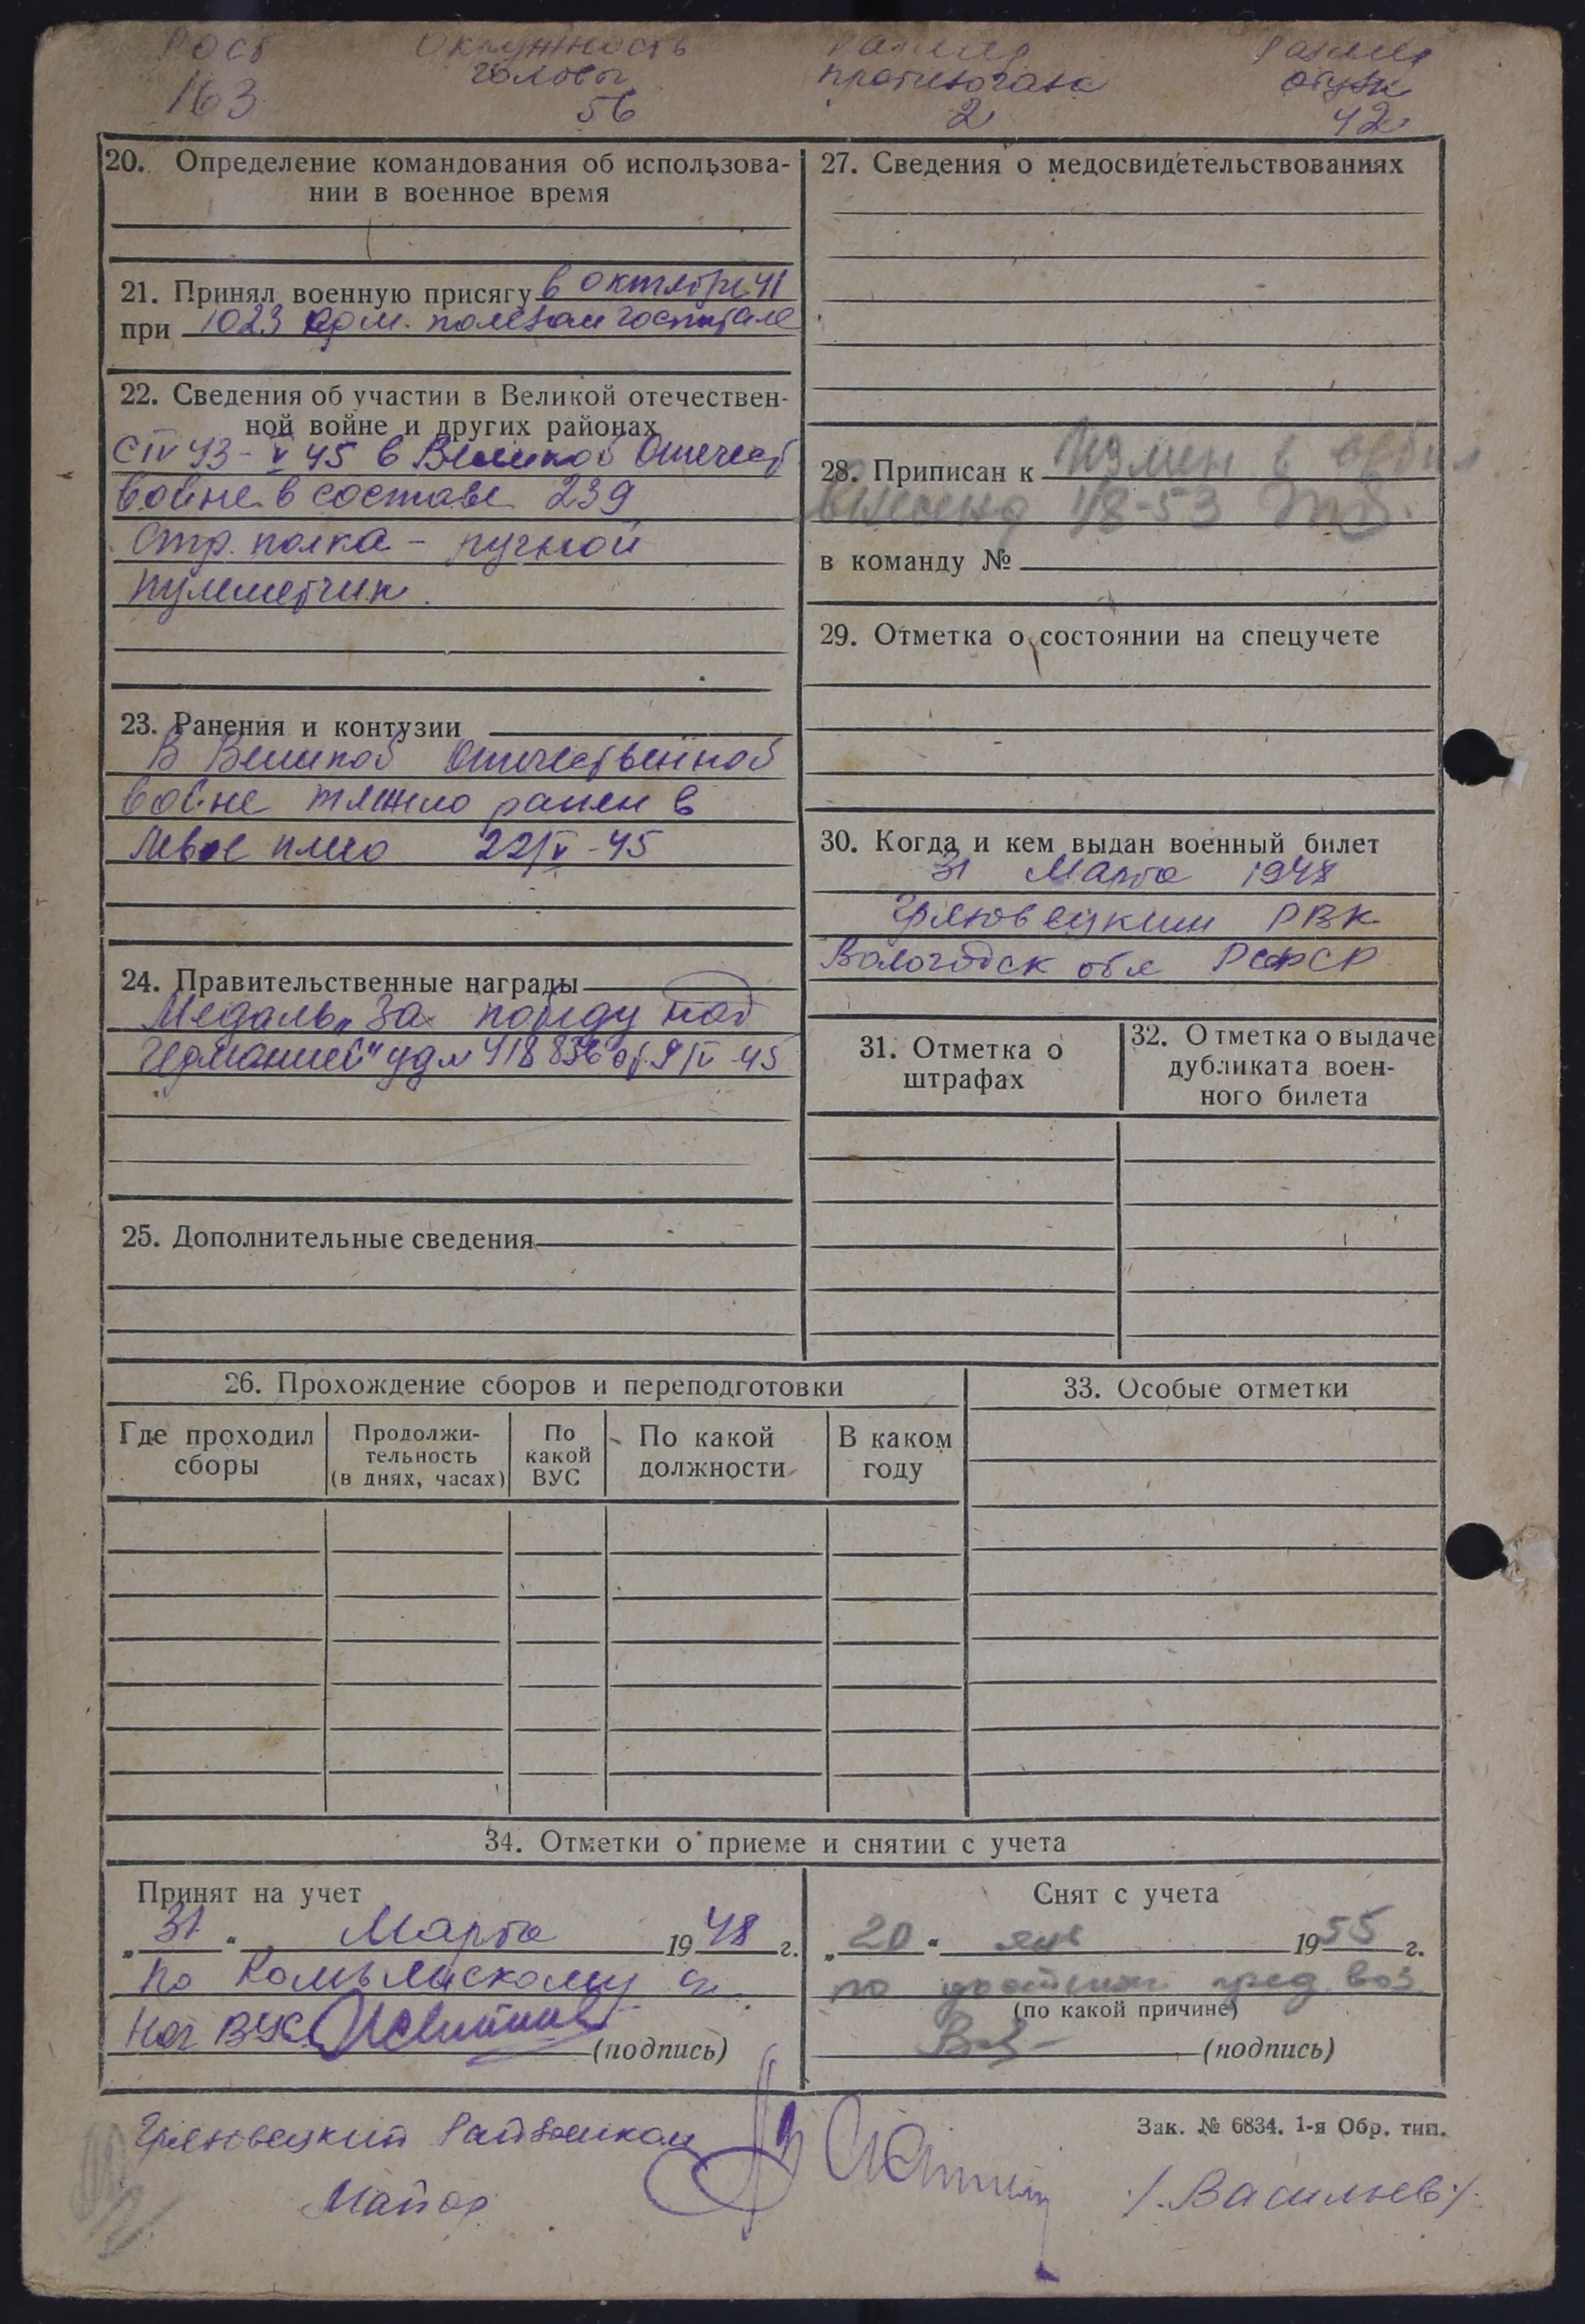 Рост Окружность Размер Размер
головы противогаза обуви
163 56 2 42
20. Определение командования об использова-
нии в военное время
21. Принял военную присягу в октябре 41
при 1023 арм. полевом госпитале
22. Сведения об участии в Великой отечествен-
ной войне и других районах
С IV 43 - V 45 в Великой Отечест
войне в составе 239
стр. полка - ручной
пулеметчик.
23. Ранения и контузии
В Великой Отечественной
войне тяжело ранен в
левое плечо 22/V - 45
24. Правительственные награды
Медаль „За победу над
Германией"
25. Дополнительные сведения
27. Сведения о медосвидетельствованиях
28. Приписан к
внесены 1/8-53
в команду №
29. Отметка о состоянии на спецучете
30. Когда и кем выдан военный билет
31 Марта 1948
Грязовецким РВК
Вологодск обл РСФСР
31. Отметка о
штрафах
32. Отметка о выдаче
дубликата воен-
ного билета
26. Прохождение сборов и переподготовки
Где проходил
сборы
Продолжи-
тельность
(в днях, часах)
По
какой
ВУС
По какой
должности
В каком
году
33. Особые отметки
34. Отметки о приеме и снятии с учета
Принят на учет
„31" Марта 1948 г.
по
Нач ВУС
(подпись)
Снят с учета
„20" янв 1955 г.
по пред. воз.
(по какой причине)
(подпись)
Зак. № 6834. 1-я Обр. тип.
Грязовецкий Райвоенком
Майор /Васильев/